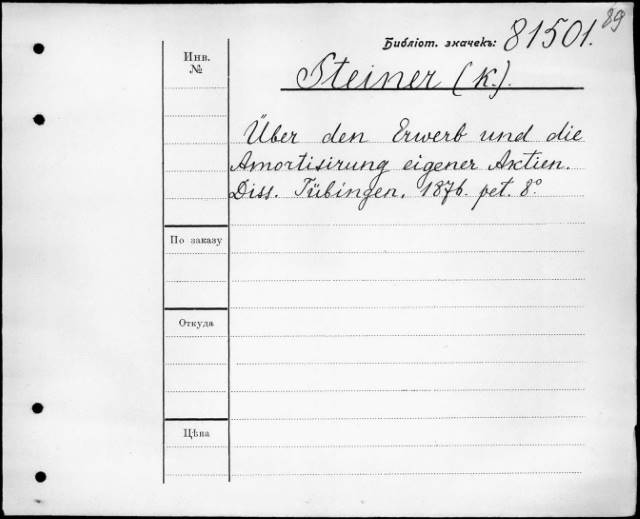 89
Библіот. значекъ: 81501.
Инв.
№
Steiner (K.).
Über den Erwerb und die
Amortisirung eigener Aktien.
Diss. Tübingen, 1876. pet. 8°
По заказу
Откуда
Цѣна